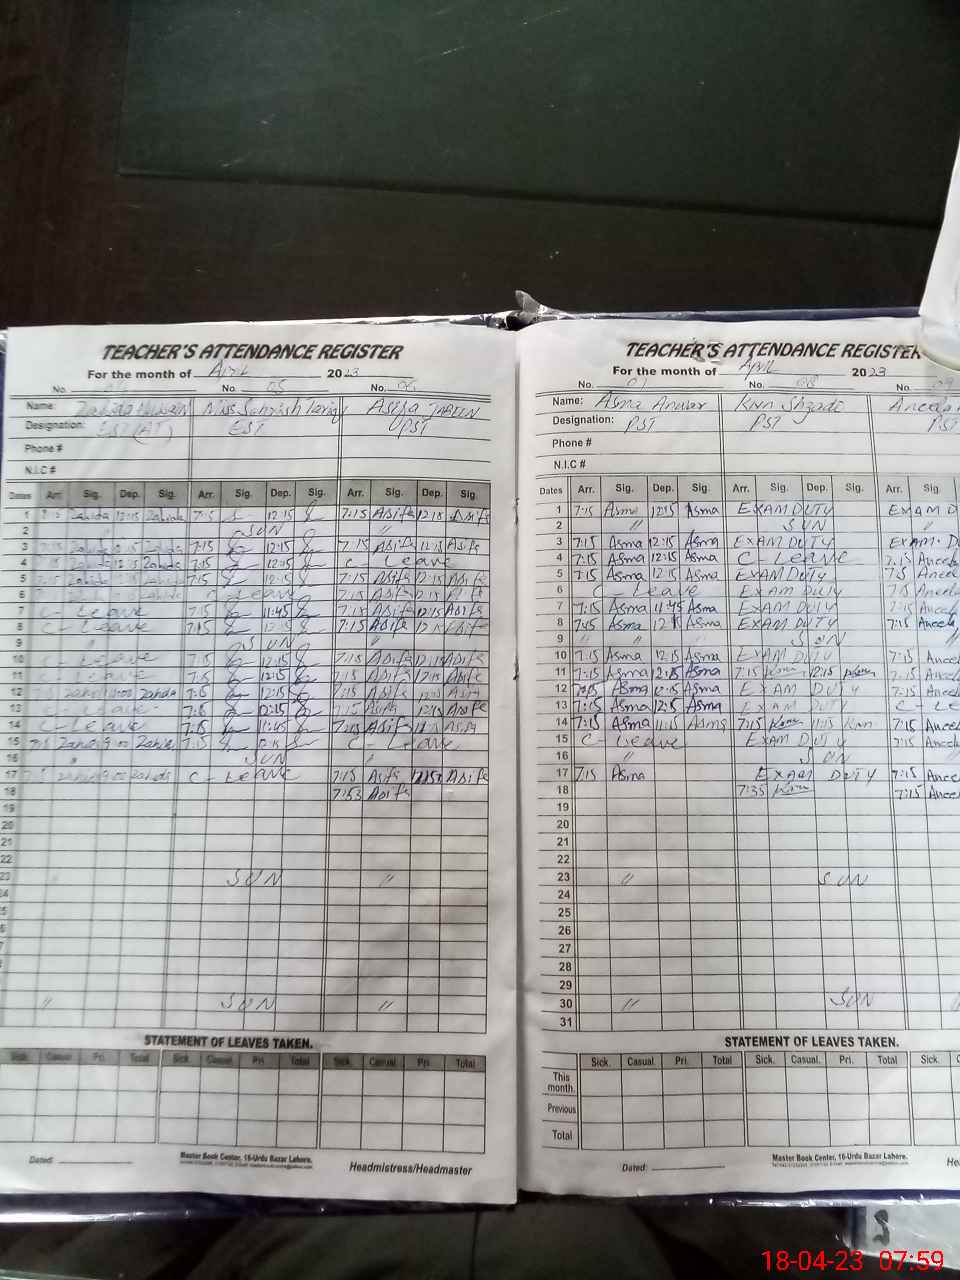 TEACHER'S ATTENDANCE REGISTER
For the month of April 2023
No. No. 05 No. 06
Name: Zahida Hussain Miss Sehrish Tariq Asifa
Designation: EST (AT) EST PST
Phone #
N.I.C #
Dates Arr. Sig. Dep. Sig. Arr. Sig. Dep. Sig. Arr. Sig. Dep. Sig.
1 Zahida 12:15 Zahida 7:15 12:15 7:15 Asifa 12:15 Asifa
2 " SUN "
3 Zahida Zahida 7:15 12:15 7:15 Asifa 12:15 Asifa
4 Zahida 12:15 Zahida 7:15 12:15 C - Leave
5 Zahida 12:15 Zahida 7:15 12:15 7:15 Asifa 12:15 Asifa
6 Zahida Zahida C - Leave 7:15 Asifa 12:15 Asifa
7 C - Leave 7:15 11:45 7:15 Asifa 12:15 Asifa
8 C - Leave 7:15 12:15 7:15 Asifa Asifa
9 SUN "
10 C - Leave 7:15 12:15 7:15 Asifa 12:15 Asifa
11 C - Leave 7:15 12:15 7:15 Asifa 12:15 Asifa
12 Zahida Zahida 7:15 12:15 7:15 Asifa Asifa
13 C - Leave 7:15 12:15 7:15 Asifa 12:15 Asifa
14 C - Leave 7:15 11:45 Asifa Asifa
15 Zahida 9:00 Zahida 7:15 12:15 C - Leave
16 " SUN "
17 Zahida 9:00 Zahida C - Leave 7:15 Asifa Asifa
18 7:53 Asifa
19
20
21
22
23 SUN "
" SUN "
STATEMENT OF LEAVES TAKEN.
Sick. Casual. Pri. Total Sick. Casual. Pri. Total Sick. Casual. Pri. Total
Dated:
Master Book Center, 16-Urdu Bazar Lahore.
Headmistress/Headmaster
TEACHER'S ATTENDANCE REGISTER
For the month of April 2023
No. 07 No. 08 No. 09
Name: Asma Anwar Knn Shzadi Aneela
Designation: PST PST PST
Phone #
N.I.C #
Dates Arr. Sig. Dep. Sig. Arr. Sig. Dep. Sig. Arr. Sig.
1 7:15 Asma 12:15 Asma EXAM DUTY EXAM D
2 " SUN "
3 7:15 Asma 12:15 Asma EXAM DUTY EXAM D
4 7:15 Asma 12:15 Asma C - LEAVE 7:15 Aneela
5 7:15 Asma 12:15 Asma EXAM DUTY 7:15 Aneela
6 C - Leave EXAM DUTY 7:15 Aneela
7 7:15 Asma 11:45 Asma EXAM DUTY 7:15 Aneela
8 7:45 Asma Asma EXAM DUTY 7:15 Aneela
9 " SUN
10 7:15 Asma 12:15 Asma EXAM DUTY 7:15 Aneela
11 7:15 Asma 12:15 Asma 7:15 Knn 12:15 Knn 7:15 Aneela
12 7:15 Asma 12:15 Asma EXAM DUTY 7:15 Aneela
13 7:15 Asma 12:15 Asma EXAM DUTY C - Le
14 7:15 Asma 11:15 Asma 7:15 Knn 11:15 Knn 7:15 Aneela
15 C - Leave EXAM DUTY 7:15 Aneela
16 " SUN
17 7:15 Asma EXAM DUTY 7:15 Aneela
18 7:35 Knn 7:15 Aneela
19
20
21
22
23 " SUN
24
25
26
27
28
29
30 " SUN
31
STATEMENT OF LEAVES TAKEN.
Sick. Casual. Pri. Total Sick. Casual. Pri. Total Sick.
This month.
Previous
Total
Dated:
Master Book Center, 16-Urdu Bazar Lahore.
18-04-23 07:59